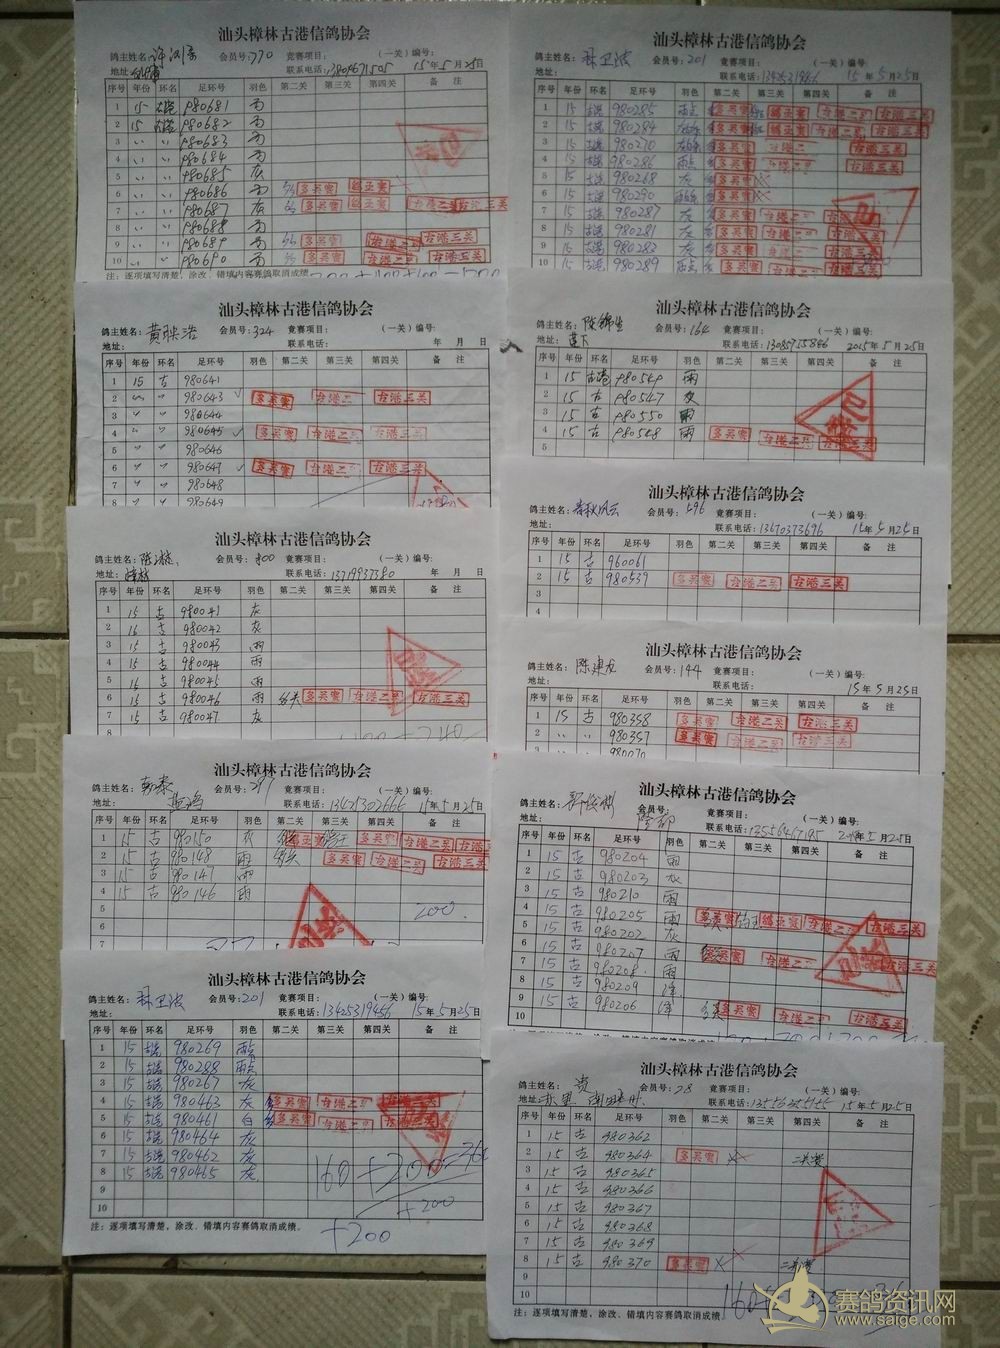 汕头樟林古港信鸽协会
鸽主姓名: 会员号:770 竞赛项目: (一关)编号:
地址: 联系电话: 15年5月25日
序号 年份 环名 足环号 羽色 第二关 第三关 第四关 备 注
1 15 古港 980681 雨
2 15 古港 980682 雨
3 〃 〃 980683 雨
4 〃 〃 980684 雨
5 〃 〃 980685 灰
6 〃 〃 980686 雨 多关赛 鸽王赛
7 〃 〃 980687 灰 多关赛 鸽王赛 古港二关 古港三关
8 〃 〃 980688 雨
9 〃 〃 980689 雨 多关赛 古港二关 古港三关
10 〃 〃 980690 雨 多关赛 古港二关 古港三关
注:逐项填写清楚,涂改、错填内容赛鸽取消成绩
汕头樟林古港信鸽协会
鸽主姓名:林卫波 会员号:201 竞赛项目: (一关)编号:
地址: 联系电话: 15年5月25日
序号 年份 环名 足环号 羽色 第二关 第三关 第四关 备 注
1 15 古港 980285 雨点 多关赛 鸽王赛 古港二关 古港三关
2 15 古港 980284 多关赛 鸽王赛 古港二关 古港三关
3 15 古港 980270 多关赛 古港二 古港三关
4 15 古港 980286 雨点 多关赛 古港二 古港三关
5 15 古港 980268 灰 多关赛
6 15 古港 980290 多关赛
7 15 古港 980287 灰 多关赛 古港二关 古港三关
8 15 古港 980281 灰 多关赛 古港二关 古港三关
9 15 古港 980282 灰 多关赛 古港二关 古港三关
10 15 古港 980289 雨点 多关赛 古港二关 古港三关
汕头樟林古港信鸽协会
鸽主姓名:黄映浩 会员号:324 竞赛项目: (一关)编号:
地址: 联系电话: 年 月 日
序号 年份 环名 足环号 羽色 第二关 第三关 第四关 备 注
1 15 古 980641
2 〃 〃 980643 多关赛 古港二 古港三关
3 〃 〃 980644
4 〃 〃 980645 多关赛 古港二关 古港三关
5 〃 〃 980646
6 〃 〃 980647 多关赛 古港二关 古港三关
7 〃 〃 980648
8 〃 〃 980649
汕头樟林古港信鸽协会
鸽主姓名:陈锦生 会员号:164 竞赛项目: (一关)编号:
地址:莲下 联系电话: 2015年5月25日
序号 年份 环名 足环号 羽色 第二关 第三关 第四关 备 注
1 15 古港 980549 雨
2 15 古 980547 灰
3 15 古 980550 雨
4 15 古 980548 雨 多关赛 古港二关 古港三关
5
汕头樟林古港信鸽协会
鸽主姓名:春秋风云 会员号:596 竞赛项目: (一关)编号:
地址: 联系电话:13670373696 15年5月25日
序号 年份 环名 足环号 羽色 第二关 第三关 第四关 备 注
1 15 古 960061
2 15 古 980539 多关赛 古港二关 古港三关
3
4
汕头樟林古港信鸽协会
鸽主姓名: 会员号:800 竞赛项目: (一关)编号:
地址:樟林 联系电话:13719937380 年 月 日
序号 年份 环名 足环号 羽色 第二关 第三关 第四关 备 注
1 15 古 980041 灰
2 15 古 980042 灰
3 15 古 980043 雨
4 15 古 980044 雨
5 15 古 980045 雨
6 15 古 980046 雨 多关 多关赛 古港二关 古港三关
7 15 古 980047 灰
8
汕头樟林古港信鸽协会
鸽主姓名:陈建龙 会员号:144 竞赛项目: (一关)编号:
地址: 联系电话: 15年5月25日
序号 年份 环名 足环号 羽色 第二关 第三关 第四关 备 注
1 15 古 980358 多关赛 古港二关 古港三关
2 〃 〃 980357 多关赛 古港二关 古港三关
3 980070
汕头樟林古港信鸽协会
鸽主姓名: 会员号:297 竞赛项目: (一关)编号:
地址: 联系电话:13425302666 15年5月25日
序号 年份 环名 足环号 羽色 第二关 第三关 第四关 备 注
1 15 古 980150 灰 鸽王赛 鸽王 多关赛 古港二关 古港三关
2 15 古 980148 雨 多关 多关赛 古港二关 古港三关
3 15 古 980147 雨
4 15 古 980146 雨
5 200
6
7
汕头樟林古港信鸽协会
鸽主姓名: 会员号: 竞赛项目: (一关)编号:
地址: 联系电话: 5月25日
序号 年份 环名 足环号 羽色 第二关 第三关 第四关 备 注
1 15 古 980204 雨
2 15 古 980203 灰
3 15 古 980210 雨
4 15 古 980205 雨 多关赛 鸽王赛 古港二关 古港三关
5 15 古 980202 灰
6 15 古 980207 雨 多关赛 古港二关 古港三关
7 15 古 980208 雨
8 15 古 980209
9 15 古 980206 多关 多关赛 古港二关 古港三关
10
汕头樟林古港信鸽协会
鸽主姓名:林卫波 会员号:201 竞赛项目: (一关)编号:
地址: 联系电话:13425319456 15年5月25日
序号 年份 环名 足环号 羽色 第二关 第三关 第四关 备 注
1 15 古港 980269 雨点
2 15 古港 980288 雨点
3 15 古港 980267 灰
4 15 古港 980463 灰 多关赛 古港二关 古港三关
5 15 古港 980461 白 多关赛 古港二关 古港三关
6 15 古港 980464 灰
7 15 古港 980462 灰
8 15 古港 980465 灰
9
10
160+200=360
+200
注:逐项填写清楚,涂改、错填内容赛鸽取消成绩。
+200
汕头樟林古港信鸽协会
鸽主姓名: 会员号:28 竞赛项目: (一关)编号:
地址: 联系电话: 15年5月25日
序号 年份 环名 足环号 羽色 第二关 第三关 第四关 备 注
1 15 古 980362
2 15 古 980364 多关赛 二关赛
3 15 古 980365
4 15 古 980366
5 15 古 980367
6 15 古 980368
7 15 古 980369
8 15 古 980370 多关赛 二关赛
9
10
注:逐项填写清楚,涂改、错填内容赛鸽取消成绩。
赛鸽资讯网
www.saige.com